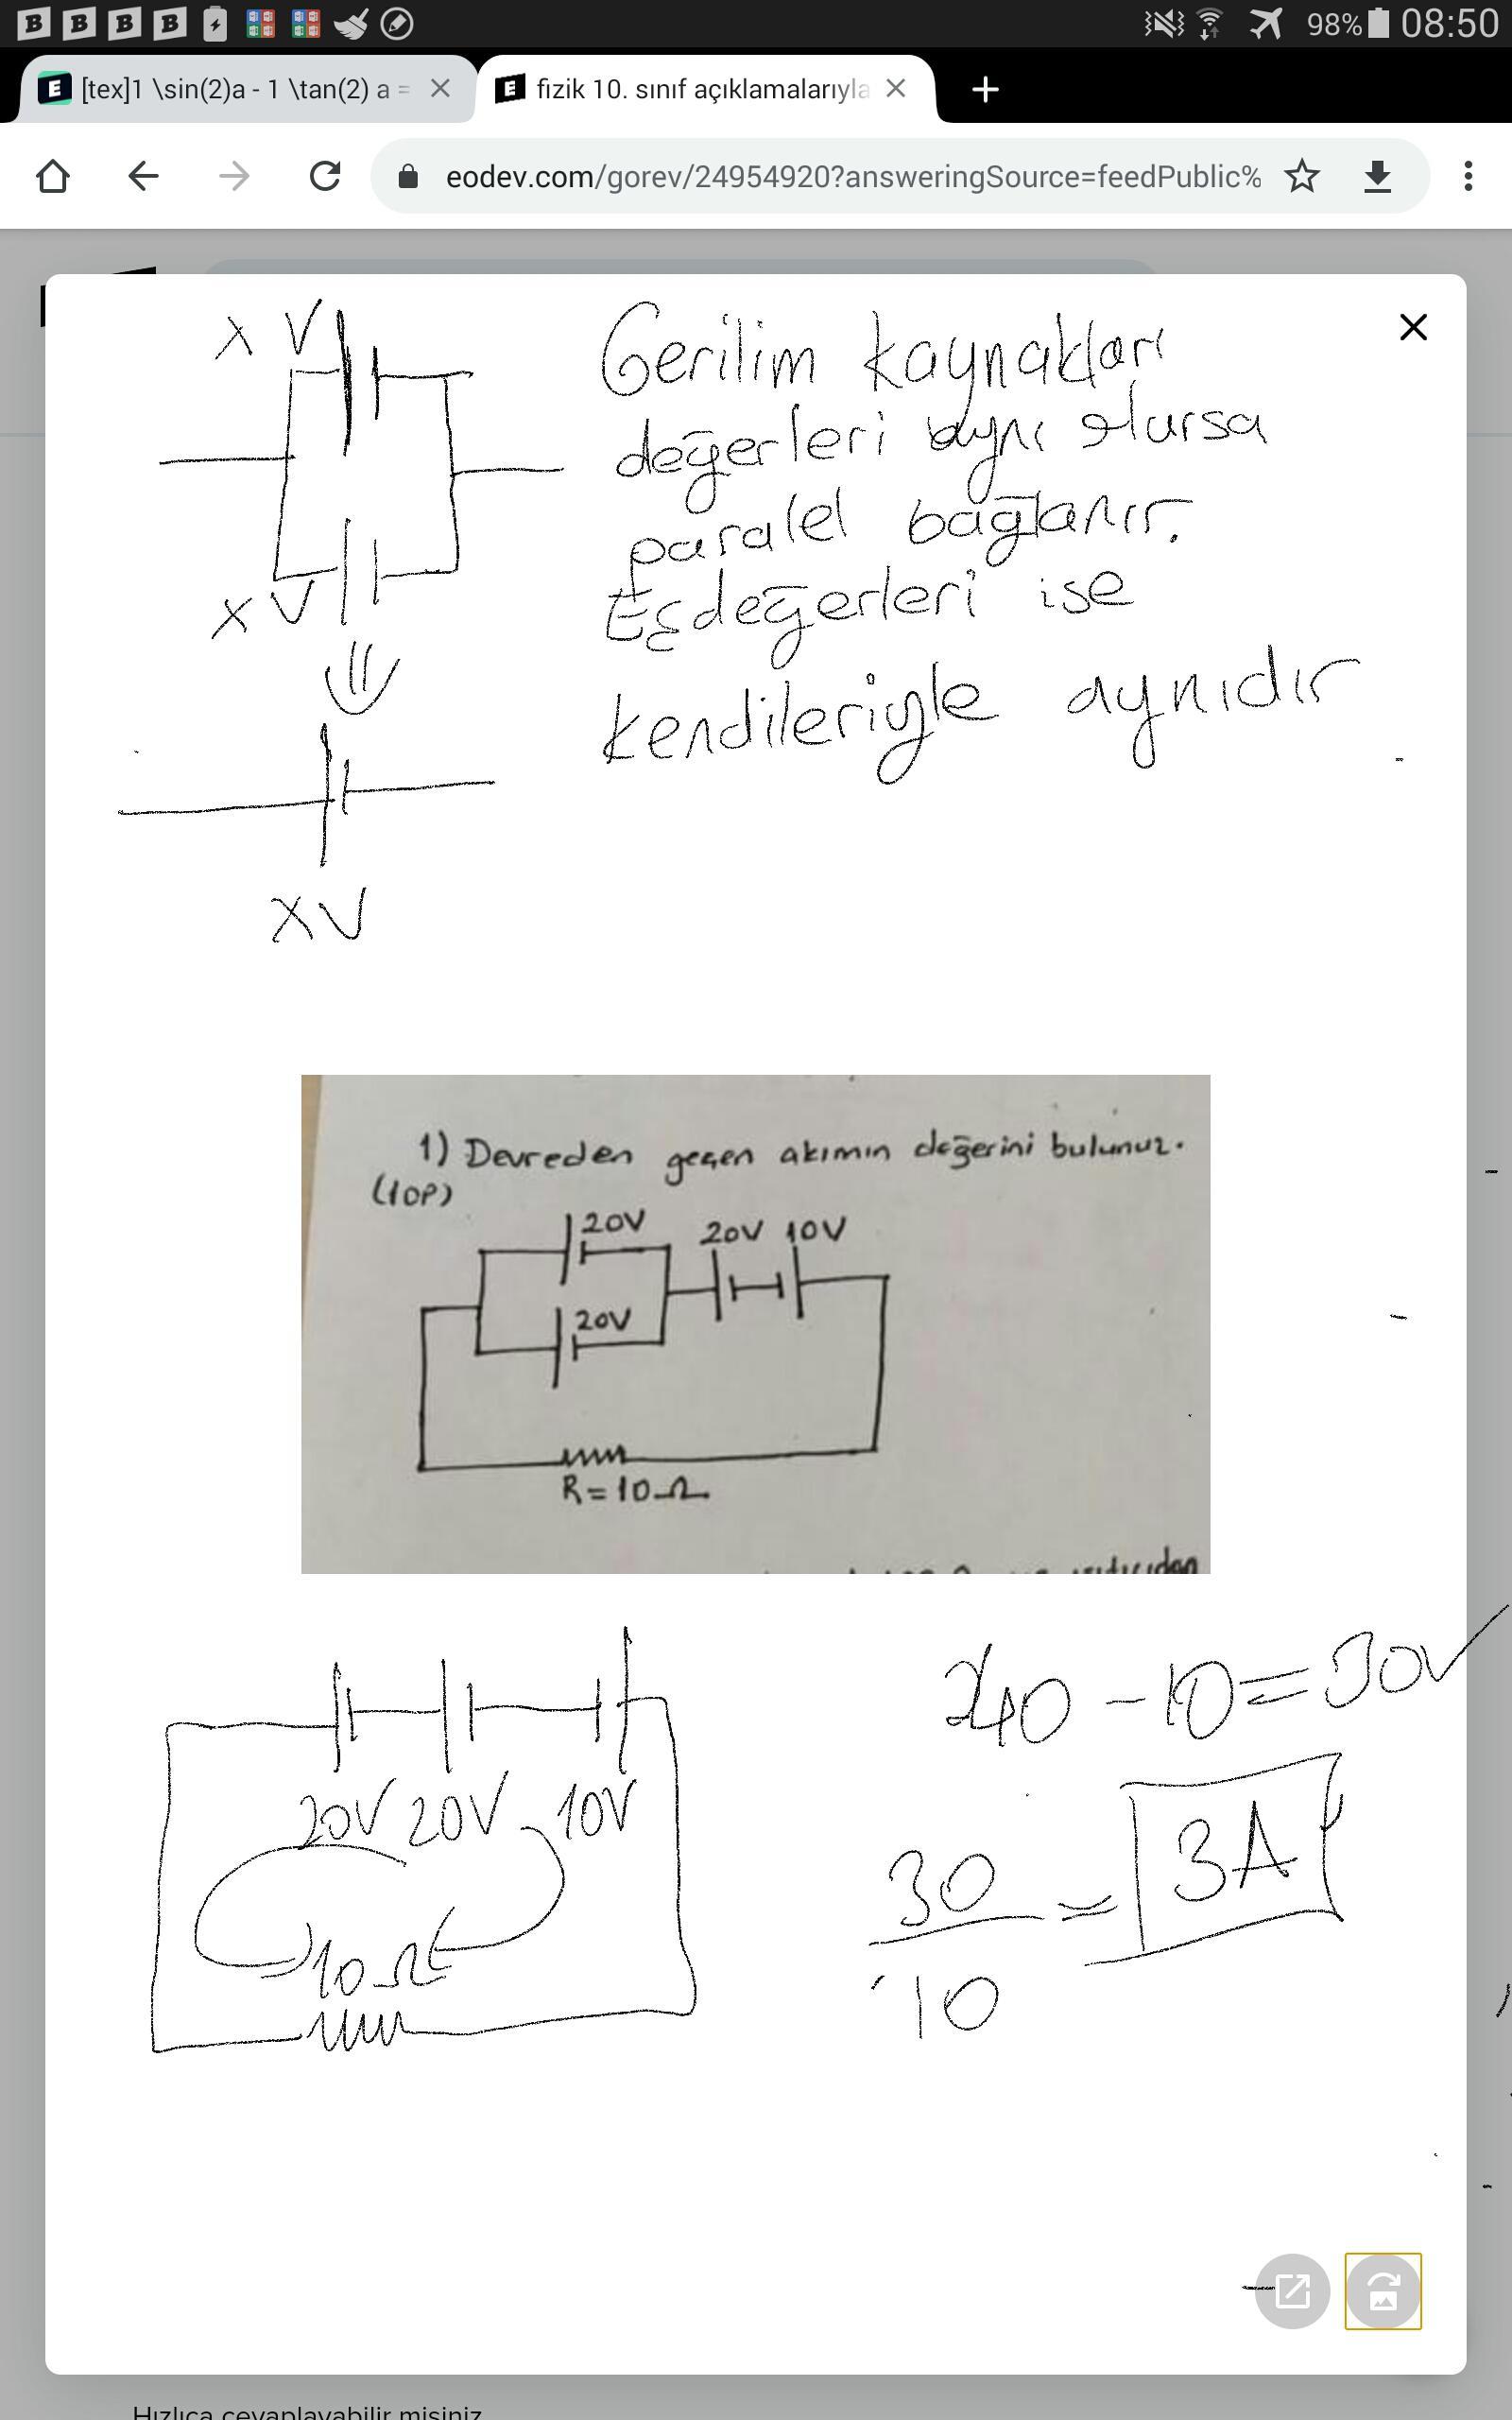 98% 08:50
[tex]1 \sin(2)a - 1 \tan(2) a =
fizik 10. sınıf açıklamalarıyla
eodev.com/gorev/24954920?answeringSource=feedPublic%
X V
Gerilim kaynakları
değerleri aynı olursa
paralel bağlanır.
X V
Eşdeğerleri ise
kendileriyle aynıdır
XV
1) Devreden geçen akımın değerini bulunuz.
(10P)
20V 20V 10V
20V
R=10Ω
40-10=30V
20V 20V 10V
30/10=3A
10Ω
Hızlıca cevaplayabilir misiniz